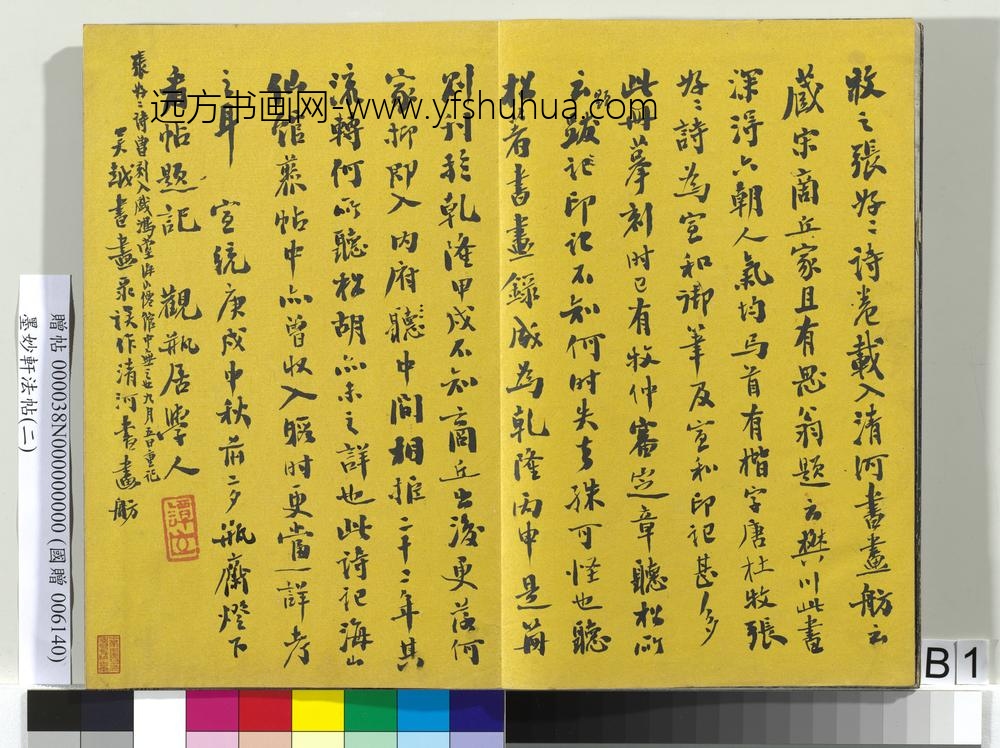 牧之張好〻詩卷載入清河書畫舫云
藏宋商丘家且有思翁題云樊川此書
深得六朝人氣均馬首有楷字唐杜牧張
好〻詩為宣和御筆及宣和印記甚多
此冊摹刻時已有牧仲審定章聽松所
云題跋記印記不知何時失去殊可怪也聽
松者書畫錄成為乾隆丙申是冊
則刊於乾隆甲戌不知商丘出後更落何
家抑即入內府聽中間相距二十二年其
流轉何所聽松胡亦未之詳也此詩記海山
仙館叢帖中亦曾收入暇時更當一詳考
之耳 宣統庚戌中秋前二夕瓶齋燈下
書帖題記 觀瓶居學人
張好之詩曾刻入戲鴻堂海山僊館中無之也九月五日重記
吴越書畫录误作清河書畫舫
远方书画网-www.yfshuhua.com
贈帖 000038N000000000 (國贈 006140)
墨妙軒法帖(二)
B 1